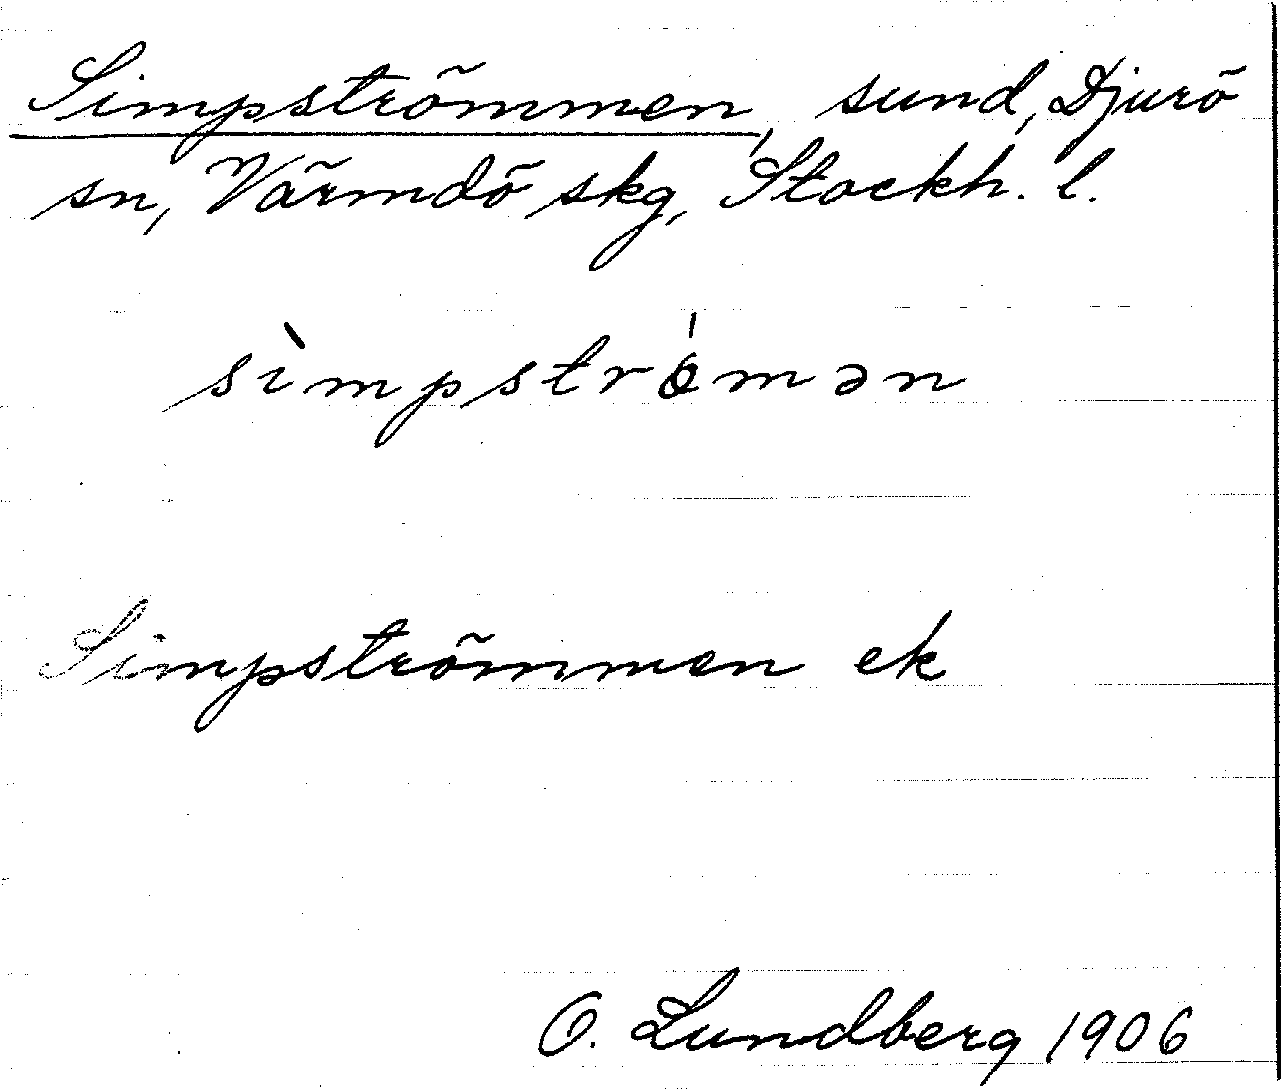 Simpströmmen, sund, Djurö
sn, Värmdö skg, Stockh. l.
sìmpstrǿmən
Simpströmmen ek
O. Lundberg 1906